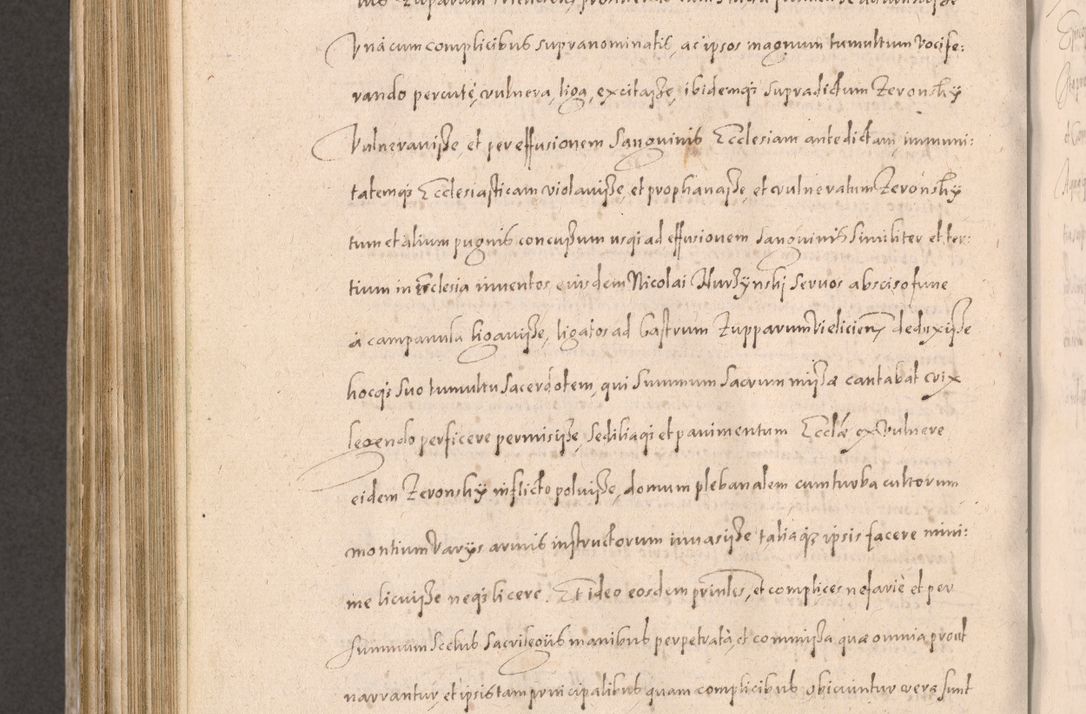 Vna cum complicibus supranominatis, ac ipsos magnum tumultum vocife:
rando percute, vulnera, liga, excitasse, ibidemqz supradictum Zeronsky
Vulneravisse, et per effusionem Sanguinis Ecclesiam antedictam, immuni:
tatemqz Ecclesiasticam violavisse, et prophanasse, et vulneratum Zeronsky
tum et alium pugnis concussum usqz ad effusionem sanguinis similiter et ter:
tium in Ecclesia inventos eiusdem Nicolai Nurzynskj servos absciso fune
à campanula ligavisse, ligatos ad Castrum Zupparum Vielicien, deduxisse
hocqz suo tumultu sacerdotem, qui summum sacrum missæ cantabat vix
legendo perficere permisisse, sediliaqz et pavimentum Ecclæ ex vulnere
eidem Zeronsky inflicto poluisse, domum plebanalem cum turba cultorum
montium varijs armis instructorum invasisse, taliaqz ipsis facere mini:
me licuisse neqz licere. Et ideo eosdem prinles, et complices nefariè et per
summum scelus sacrilegis manibus perpetrata et commissa quæ omnia prout
narrantur, et ipsis tam principalibus quam complicibus obiiciuntur vera sunt